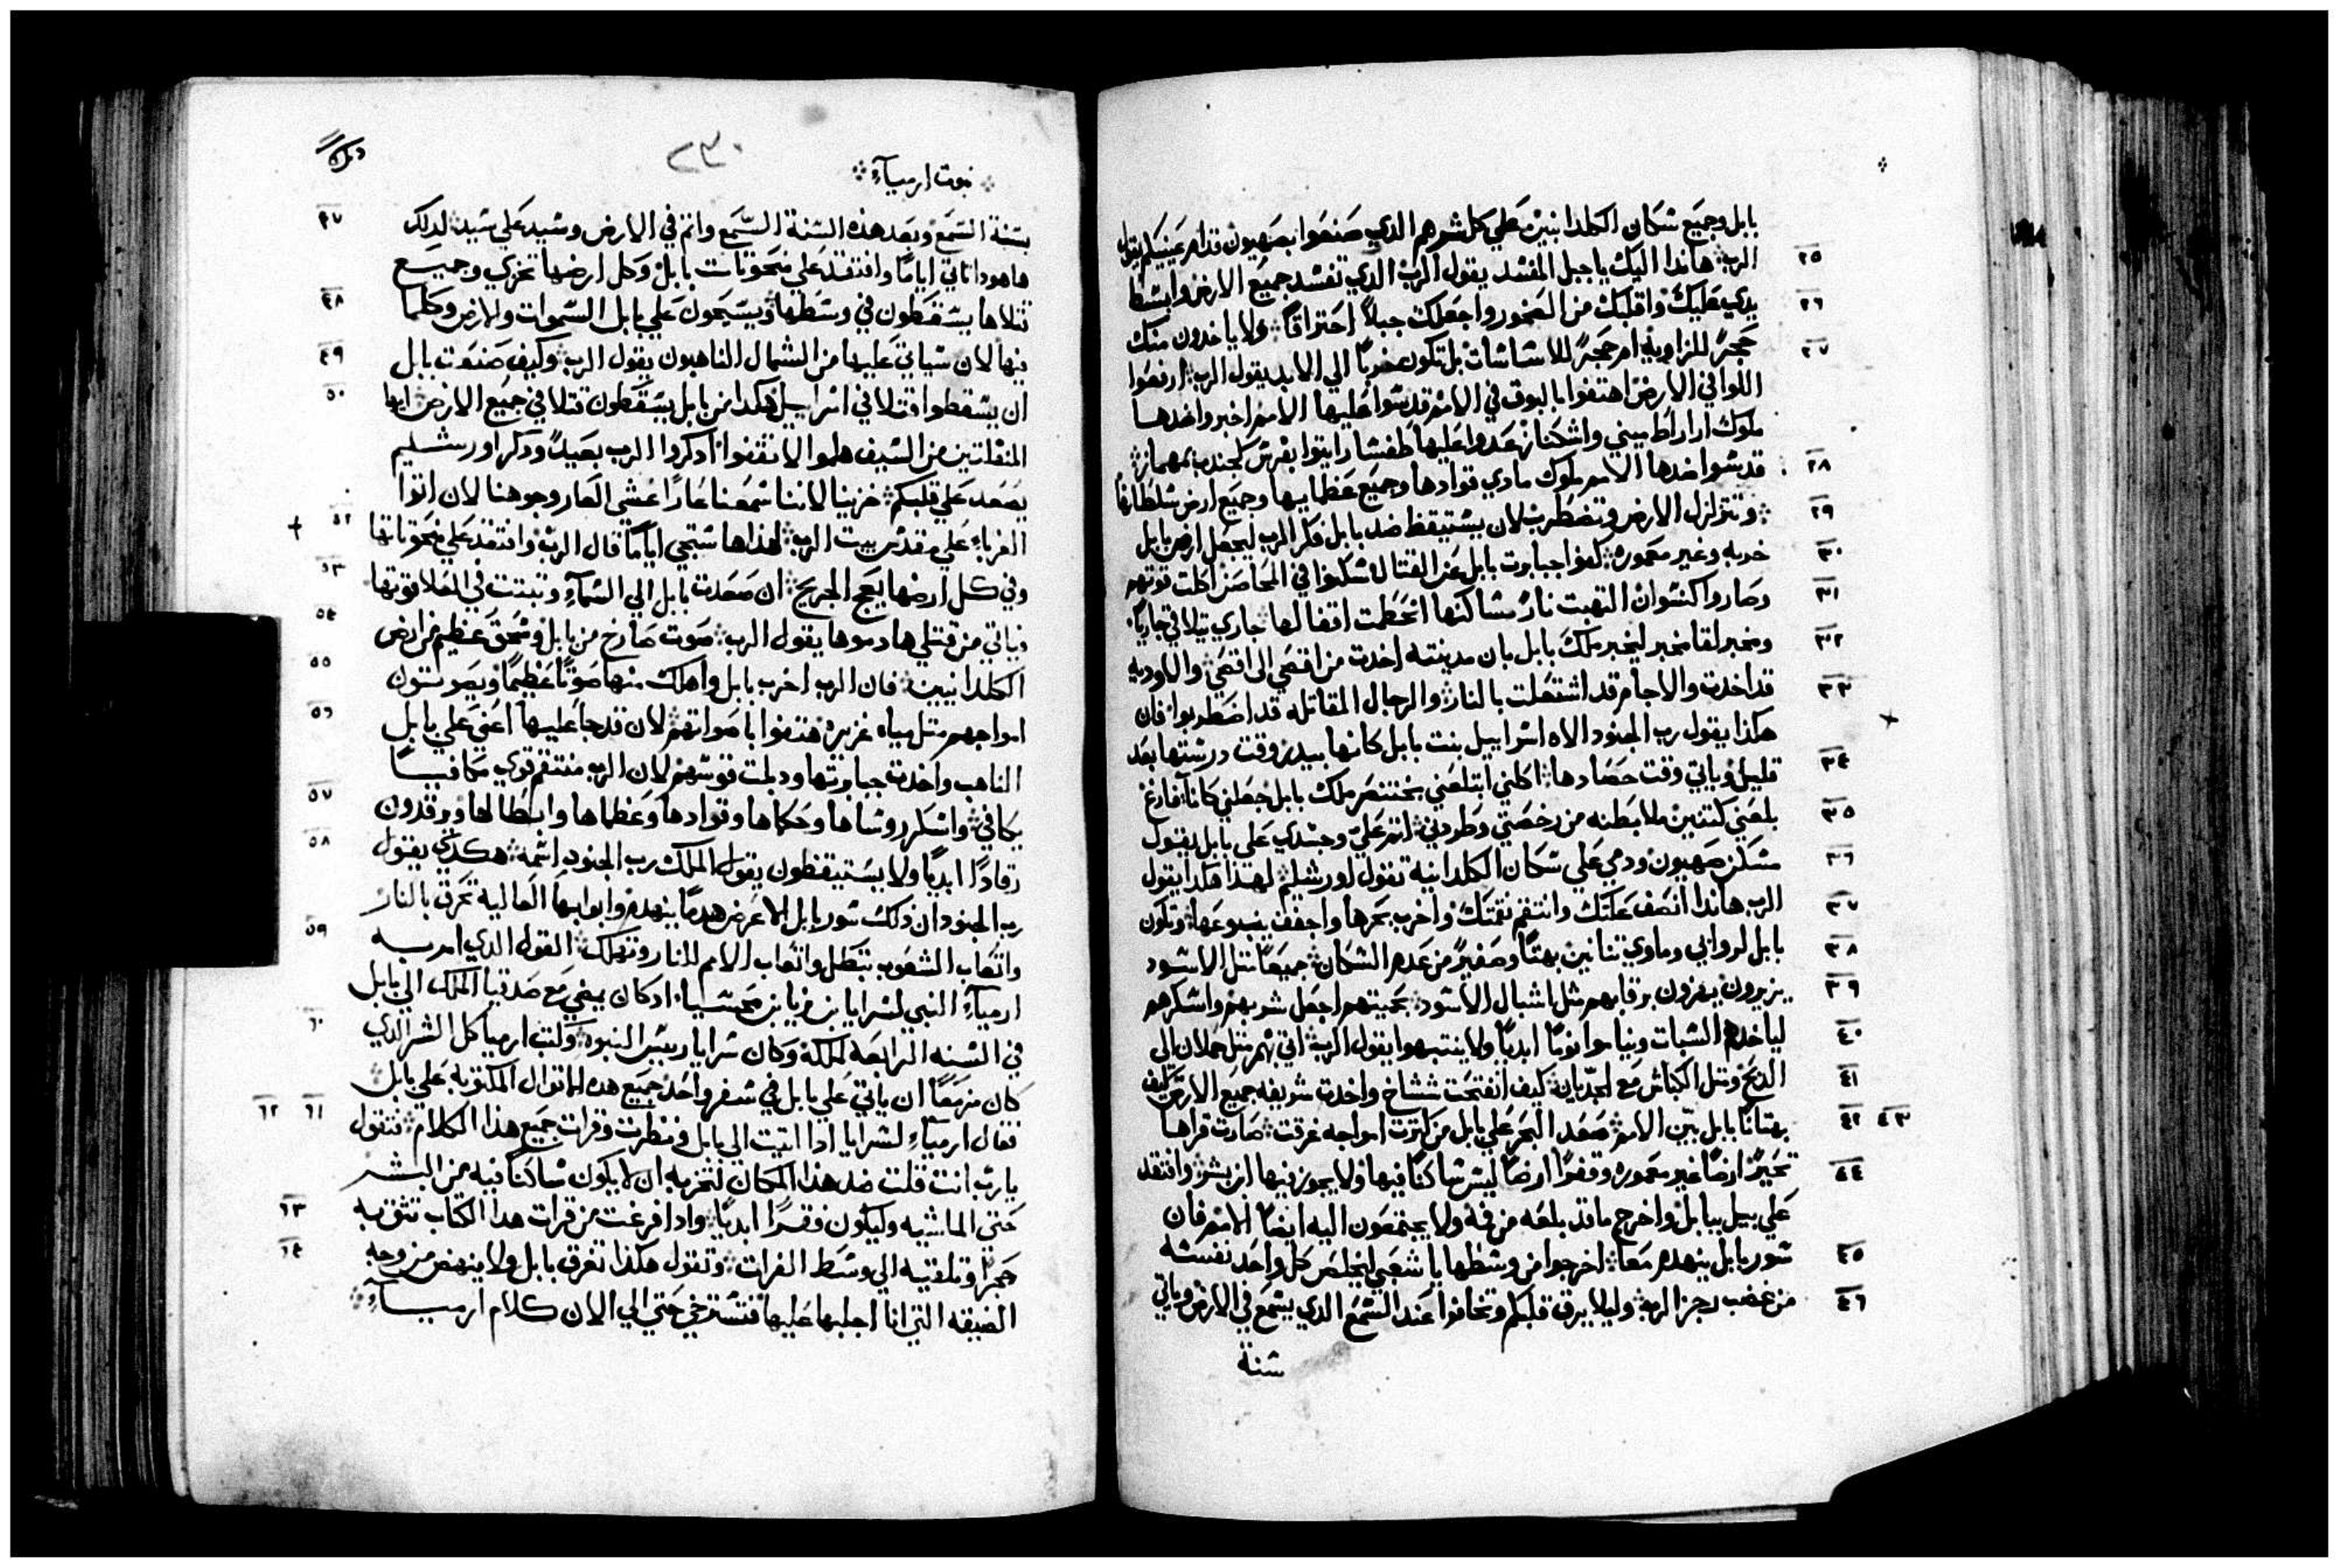 بابل وجميع سكان الكلدانيين علي كل شرهم الدي صنعوا بصهيون قدام عينيكم يقول
٢٥
الرب هاندا اليك ياجبل المفسد يقول الرب الدي تفسد جميع الارض وابسط
٢٦
يدي عليك واقلبك من الصخور واجعلك جبلاً احتراقاً ولا ياخدون منك
٢٧
حجرً للزاوية ام حجرً للاساسات بل تكون خرباً الي الابد يقول الرب ارفعوا
اللوا في الارض اهتفوا بالبوق في الامم قدسوا عليها الامم اخبروا ضدها
ملوك اراراط ميني واشكناز عدوا عليها طفسار ايتوا بفرس كجندب بمهماز
٢٨
قدسوا ضدها الامم ملوك مادي قوادها وجميع عظمايها وجميع ارض سلطانها
٢٩
وتتزلزل الارض وتضطرب لان يستيقظ ضد بابل فكر الرب ليجعل ارض بابل
٣٠
خربه وغير معموره كفوا جبابرت بابل عن القتال سكنوا في المحاصن اكلت قوتهم
٣١
وصاروا كنسوان التهبت نارً مساكنها انحطمت اقفالها جاري يتلاقي جارياً
٣٢
ومخبر لقا مخبر ليخبر ملك بابل بان مدينته اخدت من اقصي الي اقصي والاوديه
٣٣
قد اخدت والاجام قد اشتعلت بالنار والرجال المقاتله قد اضطربوا فان
هكذا يقول رب الجنود الاه اسراييل بنت بابل كانها بيدر وقت درستها بعد
٣٤
قليل وياتي وقت حصادها اكلني ابتلعني بختنصر ملك بابل جعلني كاناً فارغ
٣٥
بلعني كتنين ملا بطنه من رخصتي وطردني اتم علي وجسدي علي بابل يقول
٣٦
مسكن صهيون ودمي علي سكان الكلدانية تقول اورشليم لهذا هكذا يقول
٣٧
الرب هاندا انصف علتك وانتقم نقمتك واخرب بحرها واجفف ينبوعها وتكون
٣٨
بابل لروابي وماوي تنانين بهتاً وصفيرً من عدم السكان جميعاً مثل الاسود
٣٩
يزيرون يهزون برقابهم مثل اشبال الاسود بحميتهم اجعل شربهم واسكرهم
٤٠
لياخدهم السبات ويناموا نوماً ابدياً ولا ينتبهوا يقول الرب اتي بهم مثل حملان الي
٤١
الدبح ومثل الكباش مع الجديان كيف انفتحت ششاخ واخدت شريفه جميع الارض كيف
٤٢ ٤٣
بهتاناً بابل بين الامم صعد البحر علي بابل من كترت امواجه غرقت صارت قراها
٤٤
تحيرً ارضاً غير معموره وقفرً ارضاً ليس ساكناً فيها ولا يجوز فيها ابن بشر وافتقد
علي بيل ببابل واخرج ما قد بلعه من فمه ولا يجتمعون اليه ايضاً الامم فان
٤٥
سور بابل ينهدم معاً اخرجوا من وسطها يا شعبي ليخلص كل واحد نفسه
٤٦
من غضب رجز الرب وليلا يرق قلبكم وتخافوا عند السمع الدي يسمع في الارض وياتي
سنة
٢٣٠
نبوت ارمياء
٤٧
بسنة السمع وبعد هذه السنة السمع واتم في الارض وسيد علي سيد لدلك
هاهودا تاتي اياماً وافتقد علي منحوتات بابل وكل ارضها تخزي وجميع
٤٨
قتلاها يسقطون في وسطها ويسبحون علي بابل السموات والارض وكلما
٤٩
فيها لان سياتي عليها من الشمال الناهبون يقول الرب وكيف صنعت بابل
٥٠
ان يسقطوا قتلا في اسراييل هكدا من بابل يسقطون قتلا في جميع الارض ايها
المنفلتين من السيف هلموا لا تقفوا ادكروا الرب بعيداً ودكر اورشليم
يصعد علي قلبكم خزينا لاننا سمعنا عاراً غشي العار وجوهنا لان اتوا
٥٢
الغرباء علي مقدس بيت الرب لهذا ها ستجي اياماً قال الرب وافتقد علي منحوتاتها
٥٣
وفي كل ارضها يعج الجريح ان صعدت بابل الي السماء وتبتت في العلا قوتها
٥٤
فياتي من قبلي هادموها يقول الرب صوت صارخ من بابل وسحق عظيم من ارض
٥٥
الكلدانيين فان الرب اخرب بابل واهلك منها صوتاً عظيماً ويصوتون
٥٦
امواجهم متل مياه غزيره هتفوا باصواتهم لان قد جا عليها اعني علي بابل
الناهب واخدت جبابرتها ودبلت قوسهم لان الرب منتقم قوي مكافياً
٥٧
يكافي واسكر روساها وحكماها وقوادها وعظماها وابطالها ويرقدون
٥٨
رقاداً ابدياً ولا يستيقظون يقول الملك رب الجنود اسمه هكدي يقول
رب الجنود ان ذلك سور بابل الاعرض هدماً ينهدم وابوابها العالية تحرق بالنار
٥٩
واتعاب الشعوب تبطل واتعاب الامم للنار وتهلك القول الدي امر به
ارمياء النبي لسرايا بن نريا بن محسيا ادكان يمضي مع صدقيا الملك الي بابل
٦٠
في السنه الرابعة لملكة وكان سرايا رييس النبوه وكتب ارميا كل الشر الدي
كان مزمعاً ان ياتي علي بابل في سفر واحد جميع هده الاقوال المكتوبة علي بابل
٦١ ٦٢
فقال ارمياء لسرايا ادا اتيت الي بابل ونظرت وقرات جميع هذا الكلام فتقول
يارب انت قلت ضد هذا المكان لتخربه ان لا يكون ساكناً فيه من البشر
٦٣
حتي الماشيه وليكون فقراً ابدياً وادا فرغت من قرات هدا الكتاب تتق به
٦٤
حجراً وتلقيه الي وسط الفرات وتقول هكذا تغرق بابل ولا ينهض من وجه
الضيقه التي انا اجلبها عليها فتسترخي حتي الي الان كلام ارمياء